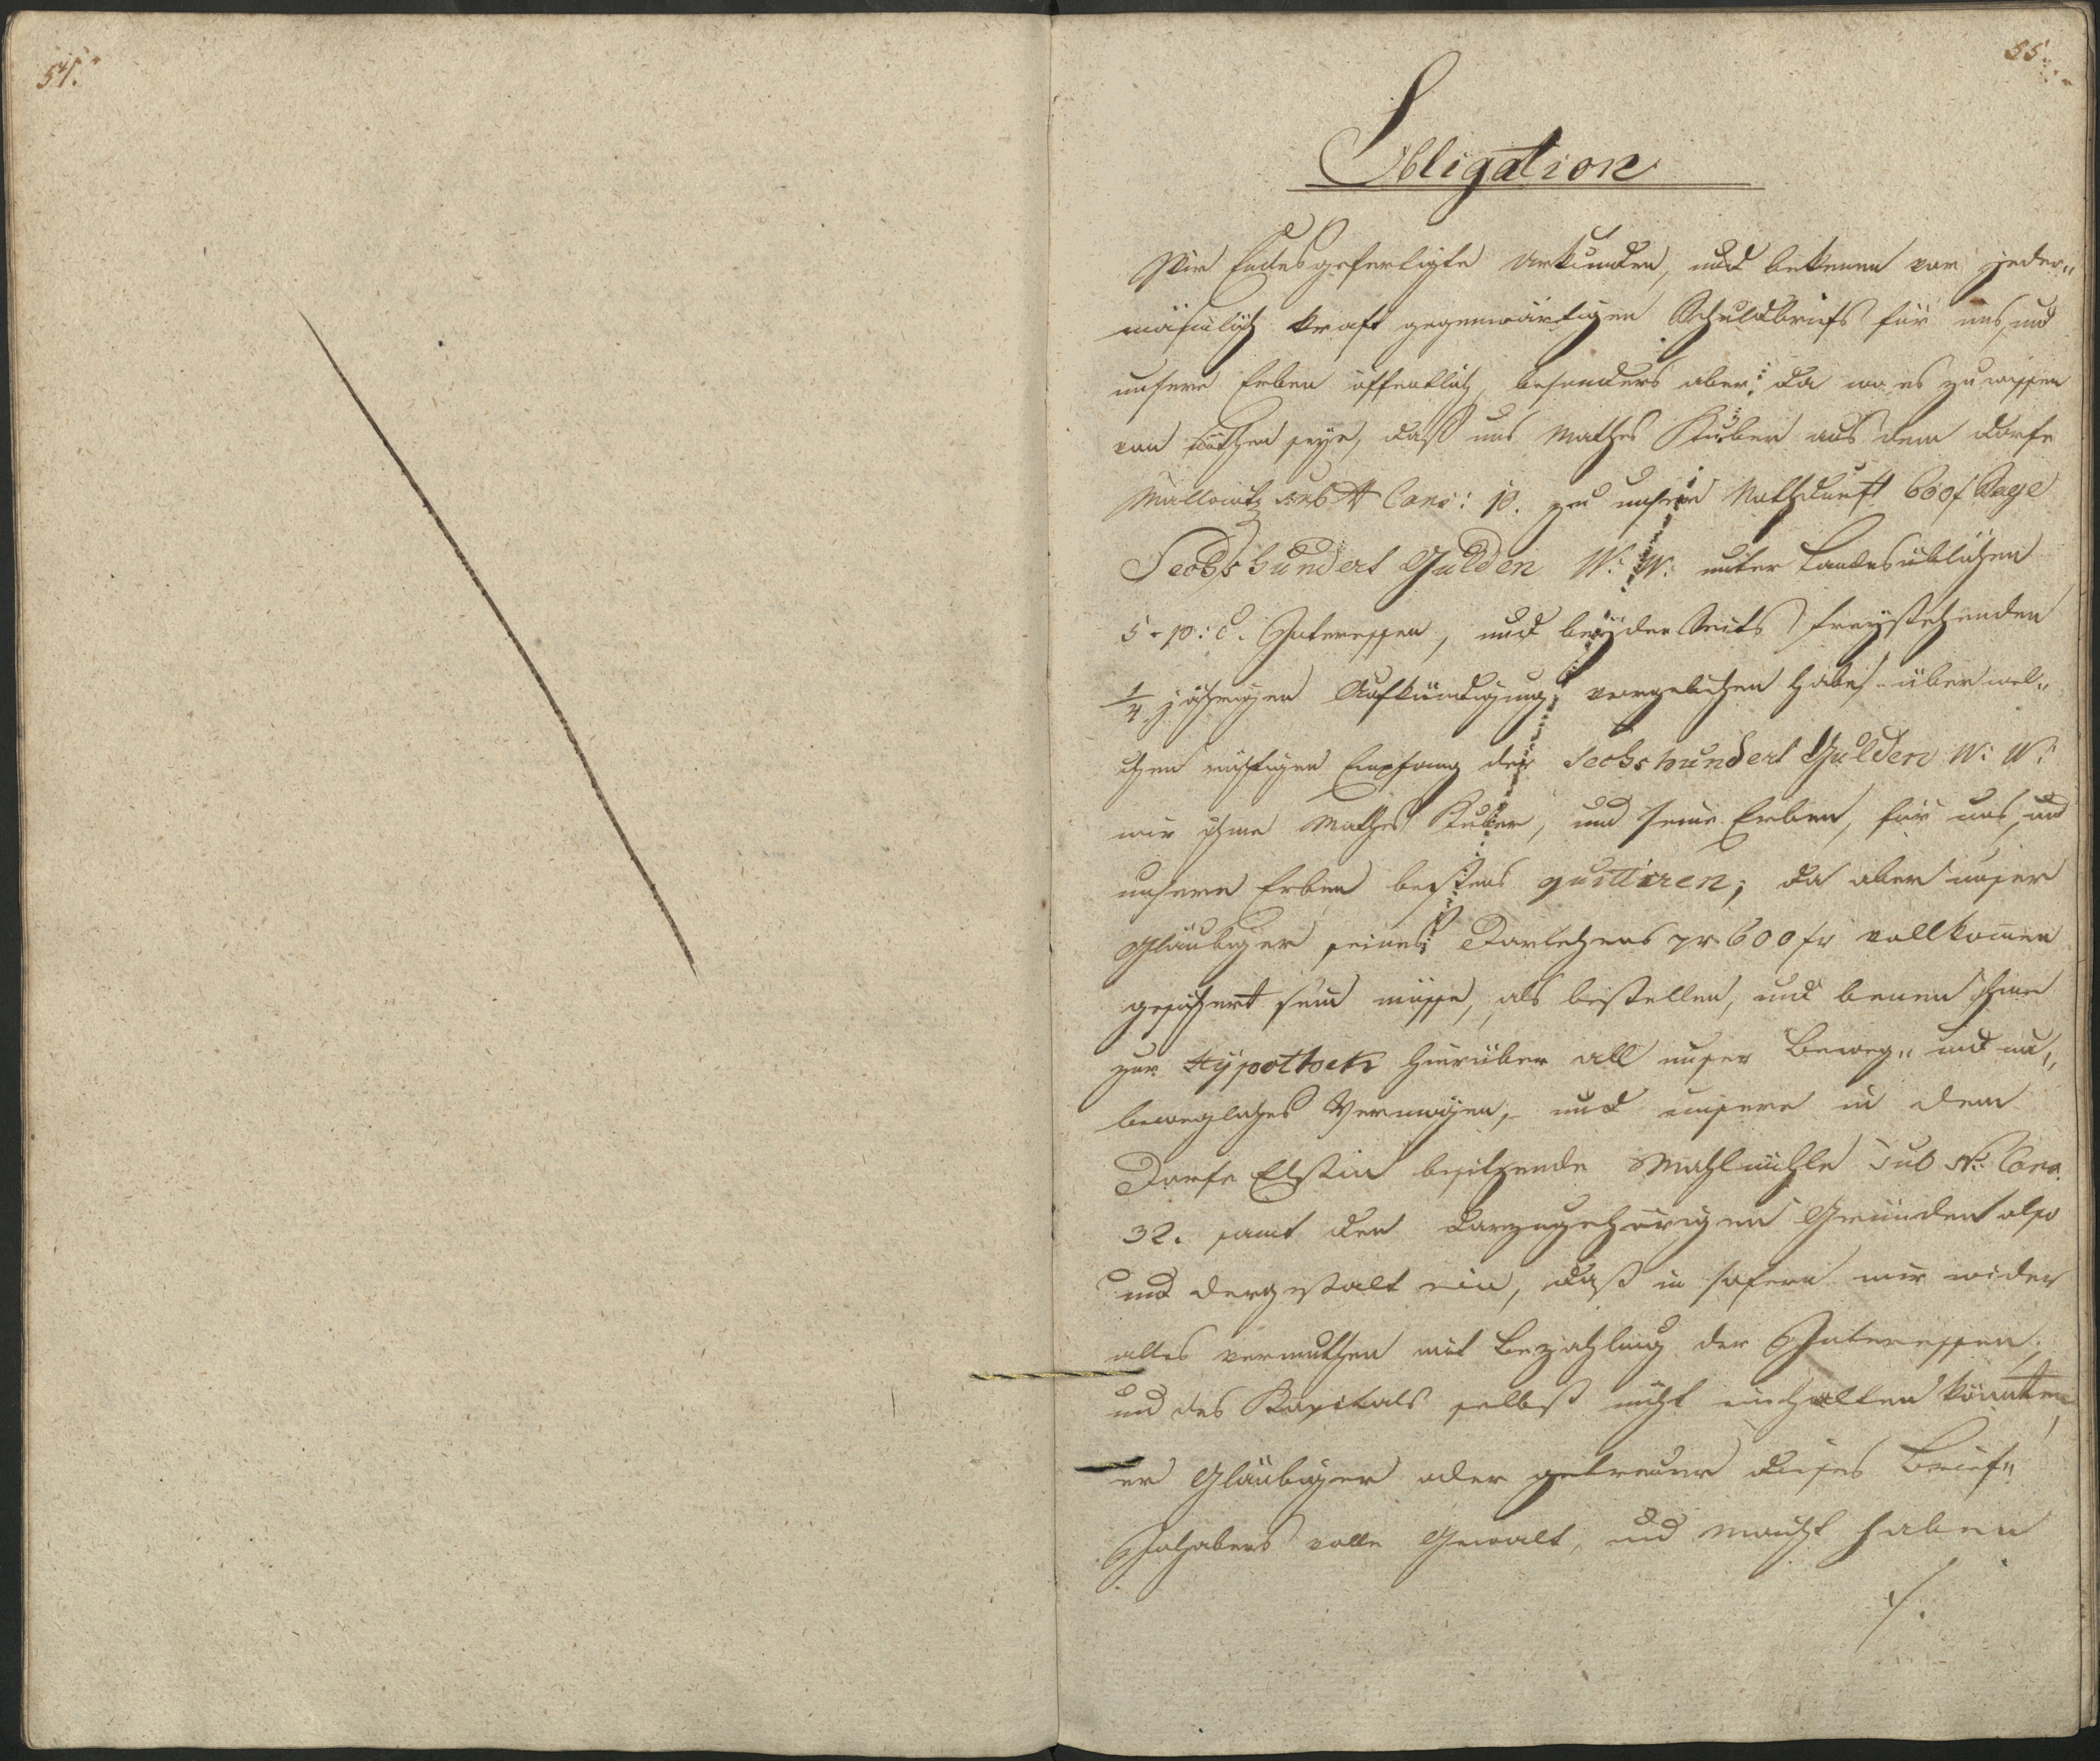 54.
55.
Obligation
Wir Endesgefertigte Urkunden, und bekenen vor jeder„
mäniglich kraft gegenwärtigen Schuldbriefs für uns, und
unsere Erben öffentlich, besonders aber da wo es zu wissen
von Nöthen seye, daß uns Mathes Kuber aus dem Dorfe
Mallowitz sub N Cons: 10. zu unserer Nothdurft 600 f Sage
Sechshundert Gulden W: W: unter Landesüblichen
5 - p: c. Interessen, und beyder Seits freystehenden
1/4 jährigen Aufkündigung vorgeliehen habe, über wel„
chen richtigen Empfang der Sechshundert Gulden W: W:
wir ihme Mathes Kuber, und seine Erben, für uns, und
unsere Erben bestens quittiren; da aber unser
Gläubiger seines Darlehens pr. 600 fr vollkomen
gesichert sein müsse, als bestellen, und benenen ihme
zur Hypothek hierüber all unser Beweg„ und un„
bewegliches Vermögen, und unsere in dem
Dorfe Elstin besitzende Mahlmühle Sub N: Cons.
32. samt den darzugehörigen Gründen also
und dergestalt ein, daß in sofern wir wider
alles vermuthen mit Bezahlung der Interessen,
und des Kapitals selbst nicht einhalten könnten,
er Gläubiger oder getreuer dieses Brief„
Inhabers volle Gewalt, und Macht haben
./.